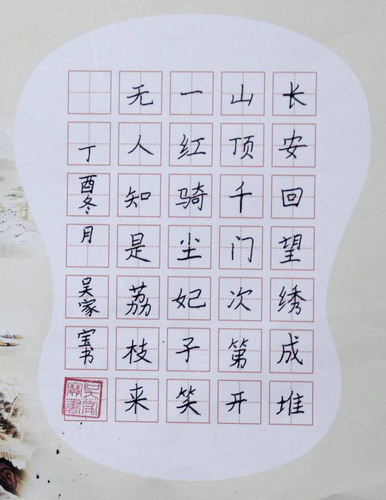 长安回望绣成堆
山顶千门次第开
一红骑尘妃子笑
无人知是荔枝来
丁酉冬月吴家宝书